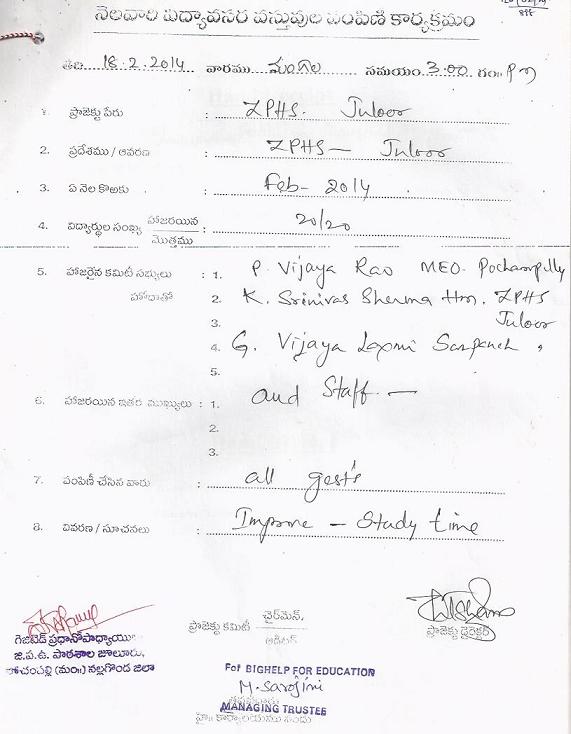 నెలవారి విద్యావసర వస్తువుల పంపిణి కార్యక్రమం
తేది 18.2.2014 వారము మంగళ సమయం 3:00 గం॥ pm
1. ప్రాజెక్టు పేరు : ZPHS. Juloor
2. ప్రదేశము / ఆవరణ : ZPHS — Juloor
3. ఏ నెల కొఱకు : Feb - 2014
4. విద్యార్థుల సంఖ్య హాజరయిన / మొత్తము : 20/20
5. హాజరైన కమిటీ సభ్యులు : 1. P. Vijaya Rao MEO. Pochampally
హోదాతో 2. K. Srinivas Sherma Hm. ZPHS
3. Juloor
4. G. Vijaya Laxmi Sarpanch,
5.
6. హాజరయిన ఇతర ముఖ్యులు : 1. and Staff. —
2.
3.
7. పంపిణీ చేసిన వారు : all gests
8. వివరణ / సూచనలు : Improve — Study time
గెజిటెడ్ ప్రధానోపాధ్యాయు
జి.ప.ఉ. పాఠశాల జూలూరు,
పోచంపల్లి (మం॥) నల్లగొండ జిలా
ప్రాజెక్టు కమిటీ ఛైర్‌మెన్, / ఆడిటర్
ప్రాజెక్టు డైరెక్టర్
For BIGHELP FOR EDUCATION
M. Sarojini
MANAGING TRUSTEE